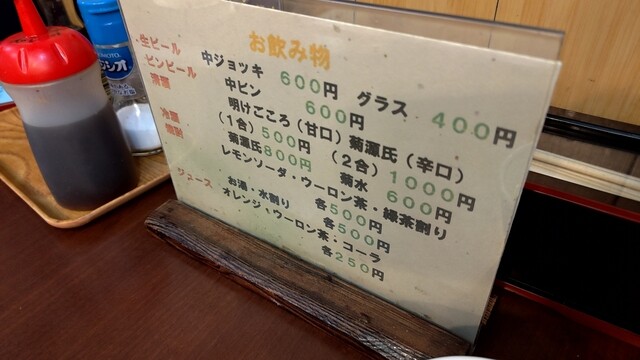 お飲み物
生ビール 中ジョッキ 600円 グラス 400円
ビンビール 中ビン 600円
清酒 明けごころ（甘口）菊源氏（辛口）
（1合）500円 （2合）1000円
冷酒 菊源氏800円 菊水 600円
レモンソーダ・ウーロン茶・緑茶割り
各500円
お湯・水割り 各500円
ジュース オレンジ・ウーロン茶・コーラ
各250円